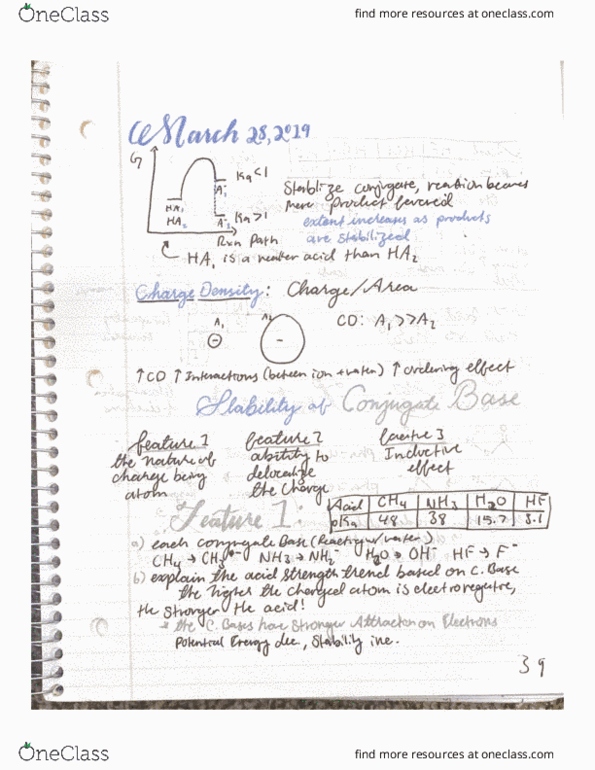 OneClass
find more resources at oneclass.com
March 28, 2019
G
Ka<1
A1
HA1
HA2
Ka>1
A2
Rxn Path
Stablize conjugate, reaction becomes
more product favored
extent increases as products
are stabilized
HA1 is a weaker acid than HA2
Charge Density: Charge/Area
A1
A2
CD: A1>>A2
↑CD ↑Interactions (between ion + water) ↑ ordering effect
Stability of Conjugate Base
feature 1
the nature of
charge being
atom
feature 2
ability to
delocalize
the charge
feature 3
Inductive
effect
Feature 1:
Acid CH4 NH3 H2O HF
pKa 48 38 15.7 3.1
a) each conjugate Base (Reacting w/water)
CH4 → CH3- NH3 → NH2- H2O → OH- HF → F-
b) explain the acid strength trend based on C. Base
the higher the charged atom is electronegative,
the stronger the acid!
the C. Bases have stronger Attraction on Electrons
Potential Energy dec, Stability inc.
39
OneClass
find more resources at oneclass.com